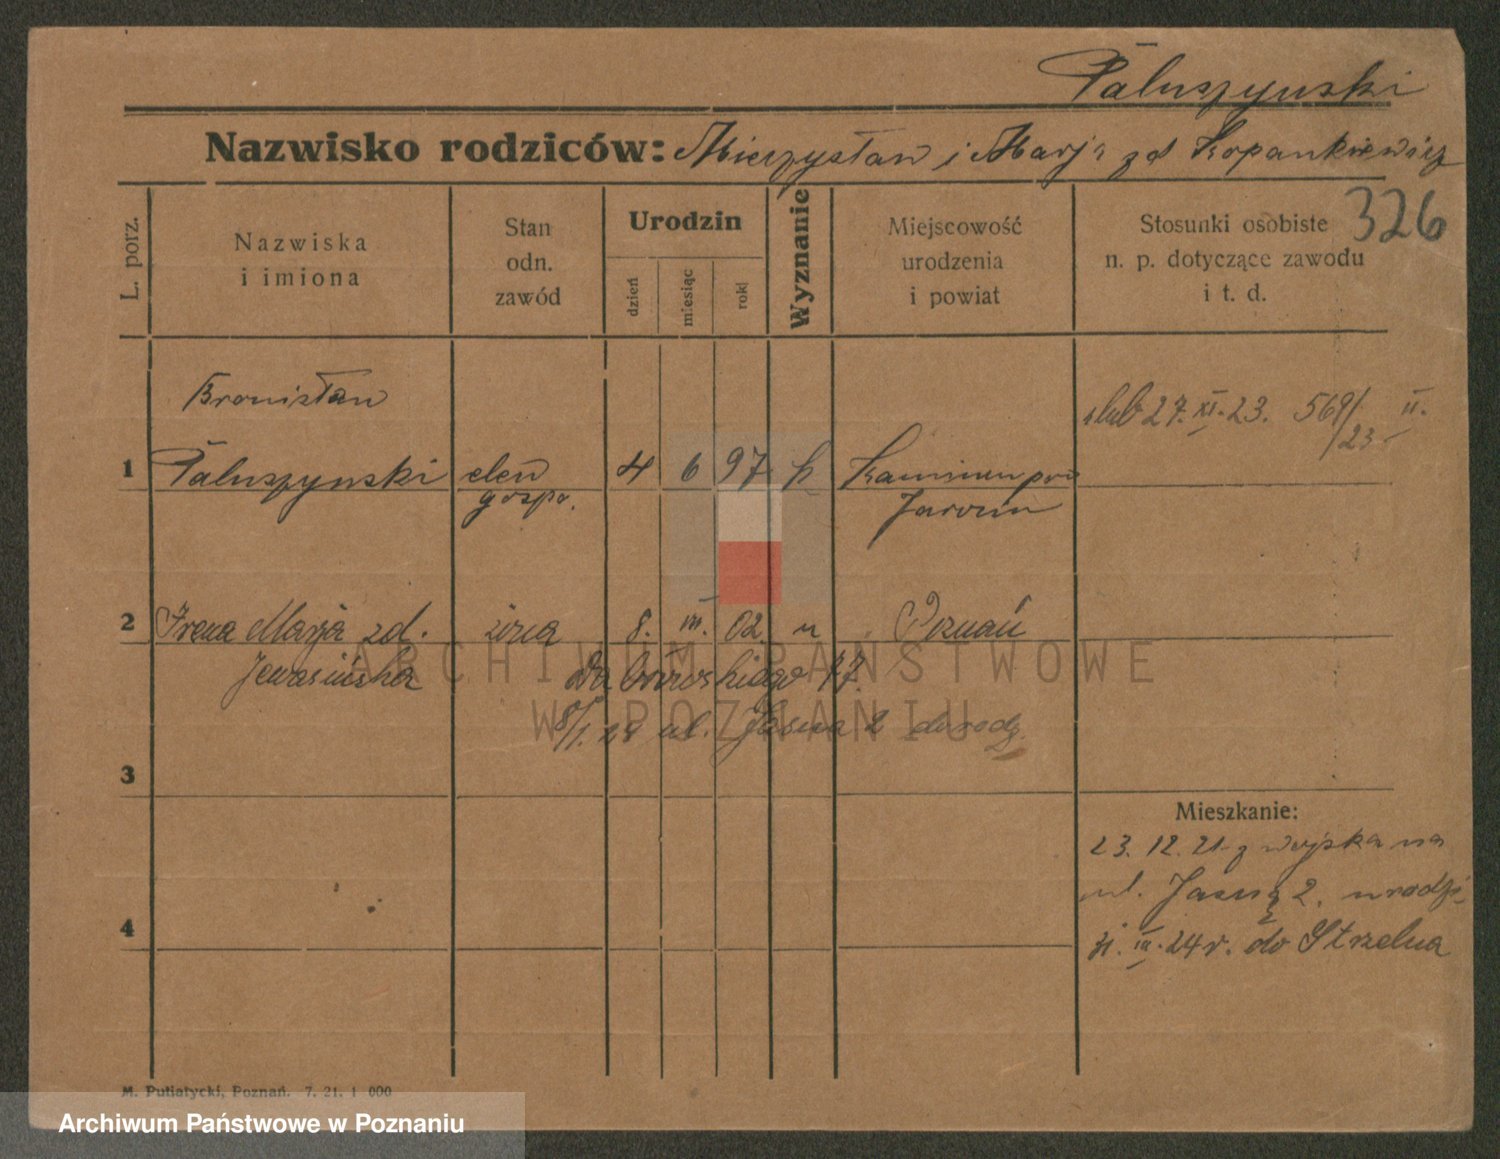 Paluszynski
Nazwisko rodziców: Mieczysław i Marja zd Kopankiewicz
326
L. porz.
Nazwiska
i imiona
Stan
odn.
zawód
Urodzin
dzień
miesiąc
rok
Wyznanie
Miejscowość
urodzenia
i powiat
Stosunki osobiste
n. p. dotyczące zawodu
i t. d.
Bronisław
ślub 27. XI. 23. 569/23 II.
1 Paluszynski elew 4 6 97 k
gospo. Jarocin
2 Irena Marja zd. żona 8. III. 02. Poznań
Dąbrowskiego 77.
8/1.28 ul. Jasna 2 do rodz.
3
Mieszkanie:
23. 12. 21 z wojska na
ul. Jasną 2. u rodzi
4
24 r. do Strzelna
M. Putiatycki, Poznań. 7. 21. 1 000
ARCHIWUM PAŃSTWOWE
W POZNANIU
Archiwum Państwowe w Poznaniu